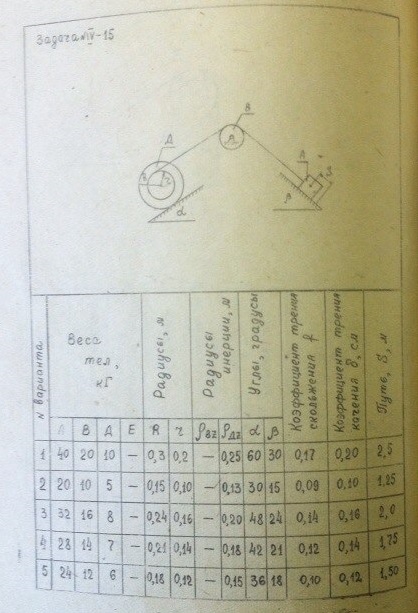 Задача №IV-15
В
Д
А
S
α
β
№ варианта
Веса
тел,
кГ
Радиусы, м
Радиусы
инерции, м
Углы, градусы
Коэффициент трения
скольжения f
Коэффициент трения
качения δ, см
Путь, S, м
А В Д Е R r ρBZ ρДZ α β
1 40 20 10 — 0,3 0,2 — 0,25 60 30 0,17 0,20 2,5
2 20 10 5 — 0,15 0,10 — 0,13 30 15 0,09 0,10 1,25
3 32 16 8 — 0,24 0,16 — 0,20 48 24 0,14 0,16 2,0
4 28 14 7 — 0,21 0,14 — 0,18 42 21 0,12 0,14 1,75
5 24 12 6 — 0,18 0,12 — 0,15 36 18 0,10 0,12 1,50